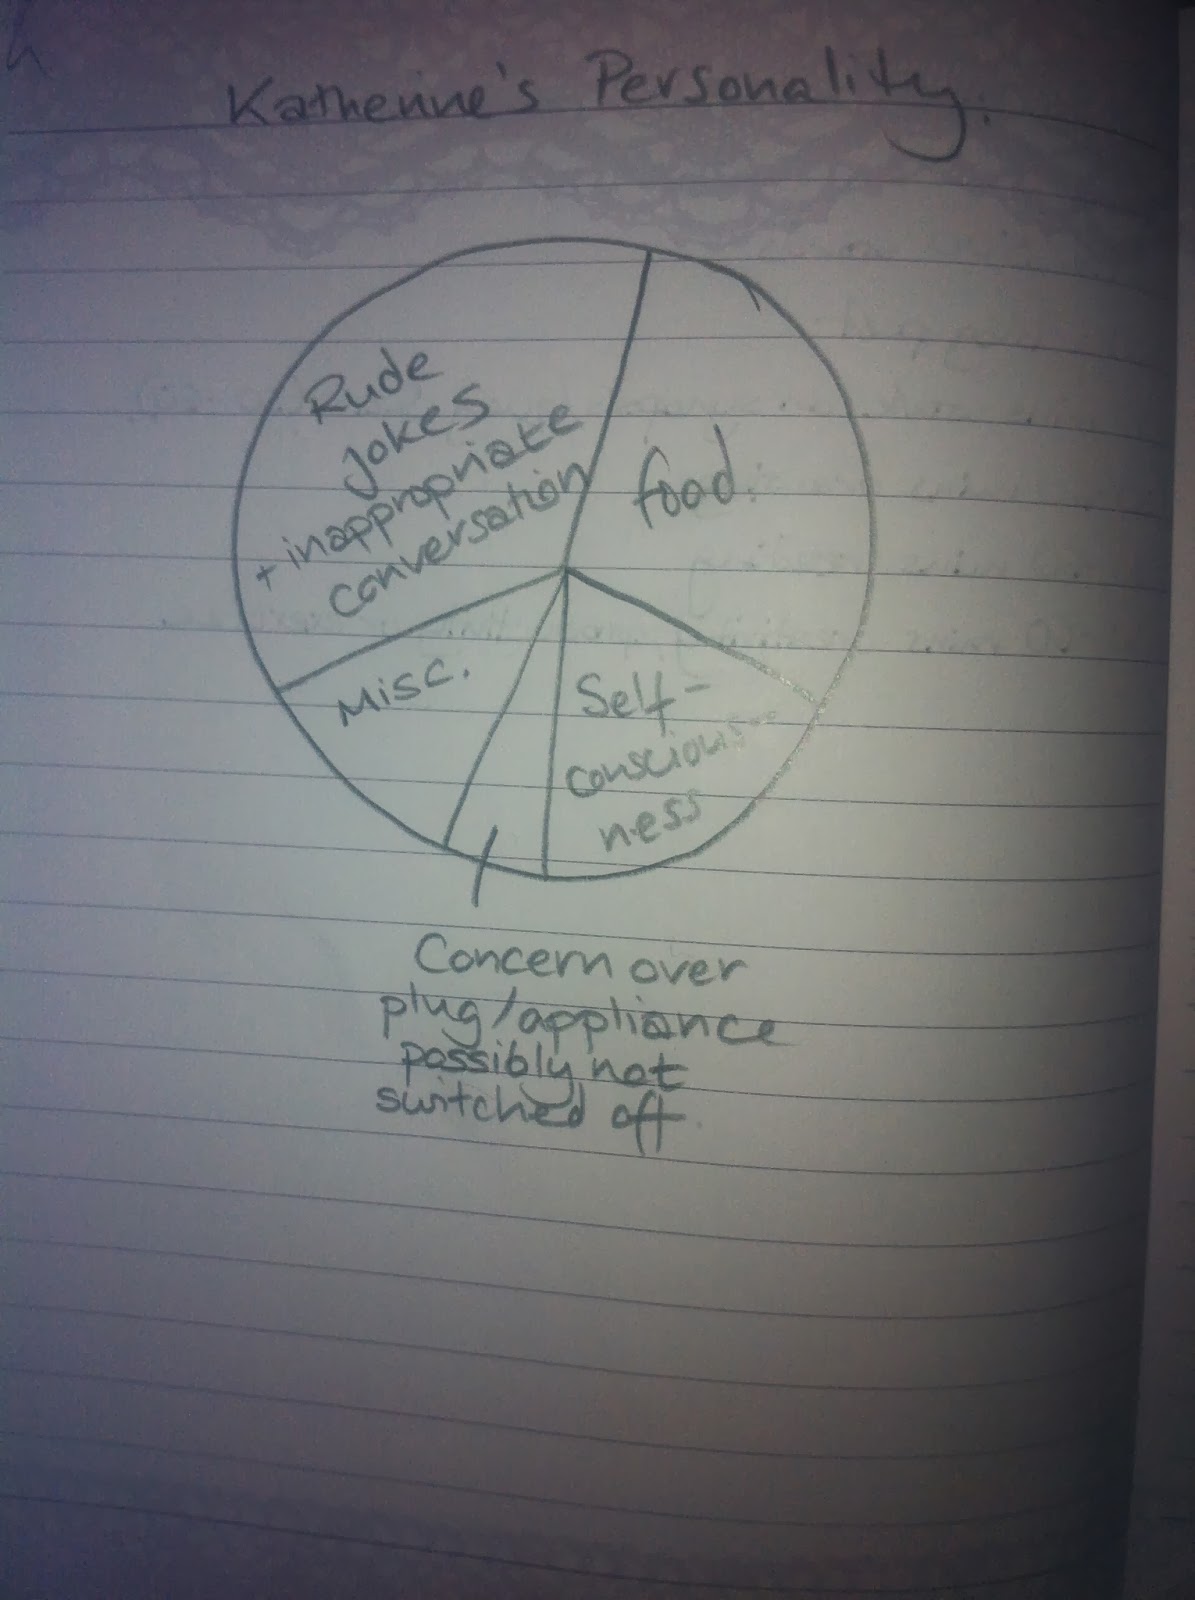 Katherine's Personality.
Rude
jokes
+ inappropriate
conversation
food.
Misc.
Self-
conscious-
ness
Concern over
plug/appliance
possibly not
switched off.